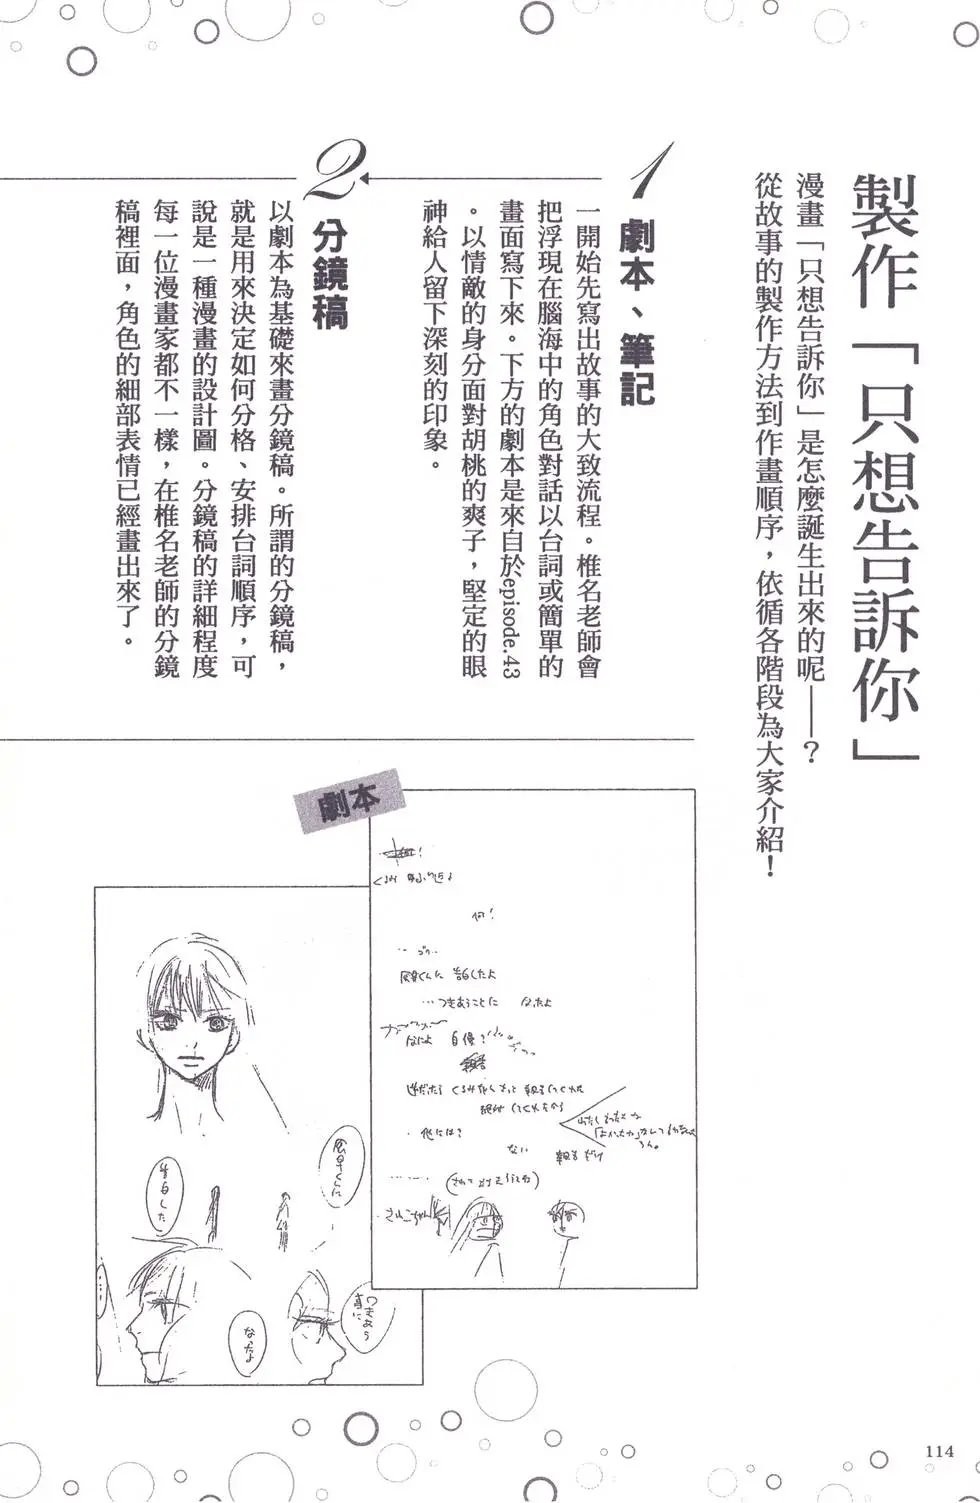 製作「只想告訴你」
漫畫「只想告訴你」是怎麼誕生出來的呢——？
從故事的製作方法到作畫順序，依循各階段為大家介紹！
1
劇本、筆記
一開始先寫出故事的大致流程。椎名老師會
把浮現在腦海中的角色對話以台詞或簡單的
畫面寫下來。下方的劇本是來自於episode.43
。以情敵的身分面對胡桃的爽子，堅定的眼
神給人留下深刻的印象。
2
分鏡稿
以劇本為基礎來畫分鏡稿。所謂的分鏡稿，
就是用來決定如何分格、安排台詞順序，可
說是一種漫畫的設計圖。分鏡稿的詳細程度
每一位漫畫家都不一樣，在椎名老師的分鏡
稿裡面，角色的細部表情已經畫出來了。
劇本
何！
風早くんに 告白したよ
…つきあうことに なったよ
なによ 自慢？
・他には？
ない
風早くんに
告白した
つきあう
事に
なったよ
114